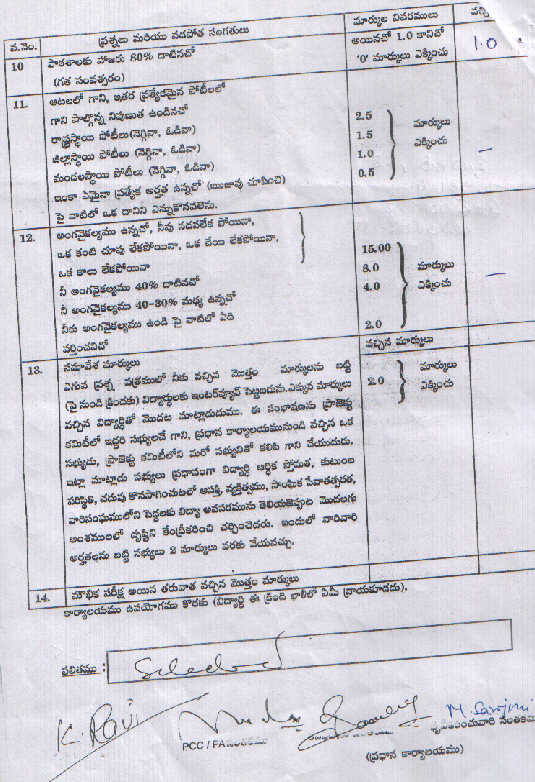 వ.నెం. ప్రశ్నలు మరియు వడపోత సంగతులు మార్కుల వివరములు వచ్చి
10 పాఠశాలకు హాజరు 80% దాటినచో అయినచో 1.0 కానిచో 1.0
(గత సంవత్సరం) '0' మార్కులు ఎక్కించు
11. ఆటలలో గాని, ఇతర ప్రత్యేకమైన పోటీలలో
గాని పాల్గొన్న నిపుణుత ఉండినచో
రాష్ట్రస్థాయి పోటీలు (నెగ్గినా, ఓడినా) 2.5 మార్కులు
జిల్లాస్థాయి పోటీలు (నెగ్గినా, ఓడినా) 1.5 ఎక్కించు
మండలస్థాయి పోటీలు (నెగ్గినా, ఓడినా) 1.0 –
ఇంకా ఏమైనా ప్రత్యేక అర్హత ఉన్నలో (ఋజువు చూపించి) 0.5
పై వాటిలో ఒక దానిని ఎన్నుకొనవలెను.
12. అంగవైకల్యము ఉన్నచో, నీవు నడవలేక పోయినా,
ఒక కంటి చూపు లేకపోయినా, ఒక చేయి లేకపోయినా,
ఒక కాలు లేకపోయినా 15.00
నీ అంగవైకల్యము 40% దాటినచో 8.0 మార్కులు
నీ అంగవైకల్యము 40-30% మధ్య ఉన్నచో 4.0 ఎక్కించు –
నీకు అంగవైకల్యము ఉండి పై వాటిలో ఏది
వర్తించనిచో 2.0
13. సమావేశ మార్కులు వచ్చిన మార్కులు
ఎగువ ప్రశ్న పత్రములో నీకు వచ్చిన మొత్తం మార్కులను బట్టి మార్కులు
(పై నుండి క్రిందకు) విద్యార్థులకు ఇంటర్వ్యూర్ పెట్టబడును.ఎక్కువ మార్కులు 2.0 ఎక్కించు
వచ్చిన విద్యార్థితో మొదట మాట్లాడుదుము. ఈ సంభాషణను ప్రాజెక్టు
కమిటీలో ఇద్దరి సభ్యులచే గాని, ప్రధాన కార్యాలయమునుండి వచ్చిన ఒక
సభ్యుడు, ప్రాజెక్టు కమిటీలోని మరో సభ్యునితో కలిపి గాని చేయుదురు.
ఇట్లా మాట్లాడు సభ్యులు ప్రధానంగా విద్యార్థి ఆర్థిక స్తోమత, కుటుంబ
పరిస్థితి, చదువు కొనసాగించుటలో ఆసక్తి, వ్యక్తిత్వము, సాంఘిక సేవాతత్పరత,
వారిసంఘములోని పెద్దలకు విద్యా అవసరమును తెలియజెప్పుట మొదలగు
అంశములలో దృష్టిని కేంద్రీకరించి చర్చించెదరు. ఇందులో వారివారి
అర్హతలను బట్టి సభ్యులు 2 మార్కులు వరకు వేయవచ్చు.
14. మౌఖిక పరీక్ష అయిన తరువాత వచ్చిన మొత్తం మార్కులు
కార్యాలయము ఉపయోగము కొరకు (విద్యార్థి ఈ క్రింది ఖాళీలో ఏమీ వ్రాయకూడదు).
ఫలితము : Selected
K. Ravi M. Sarojini
PCC / FA
(ప్రధాన కార్యాలయము)